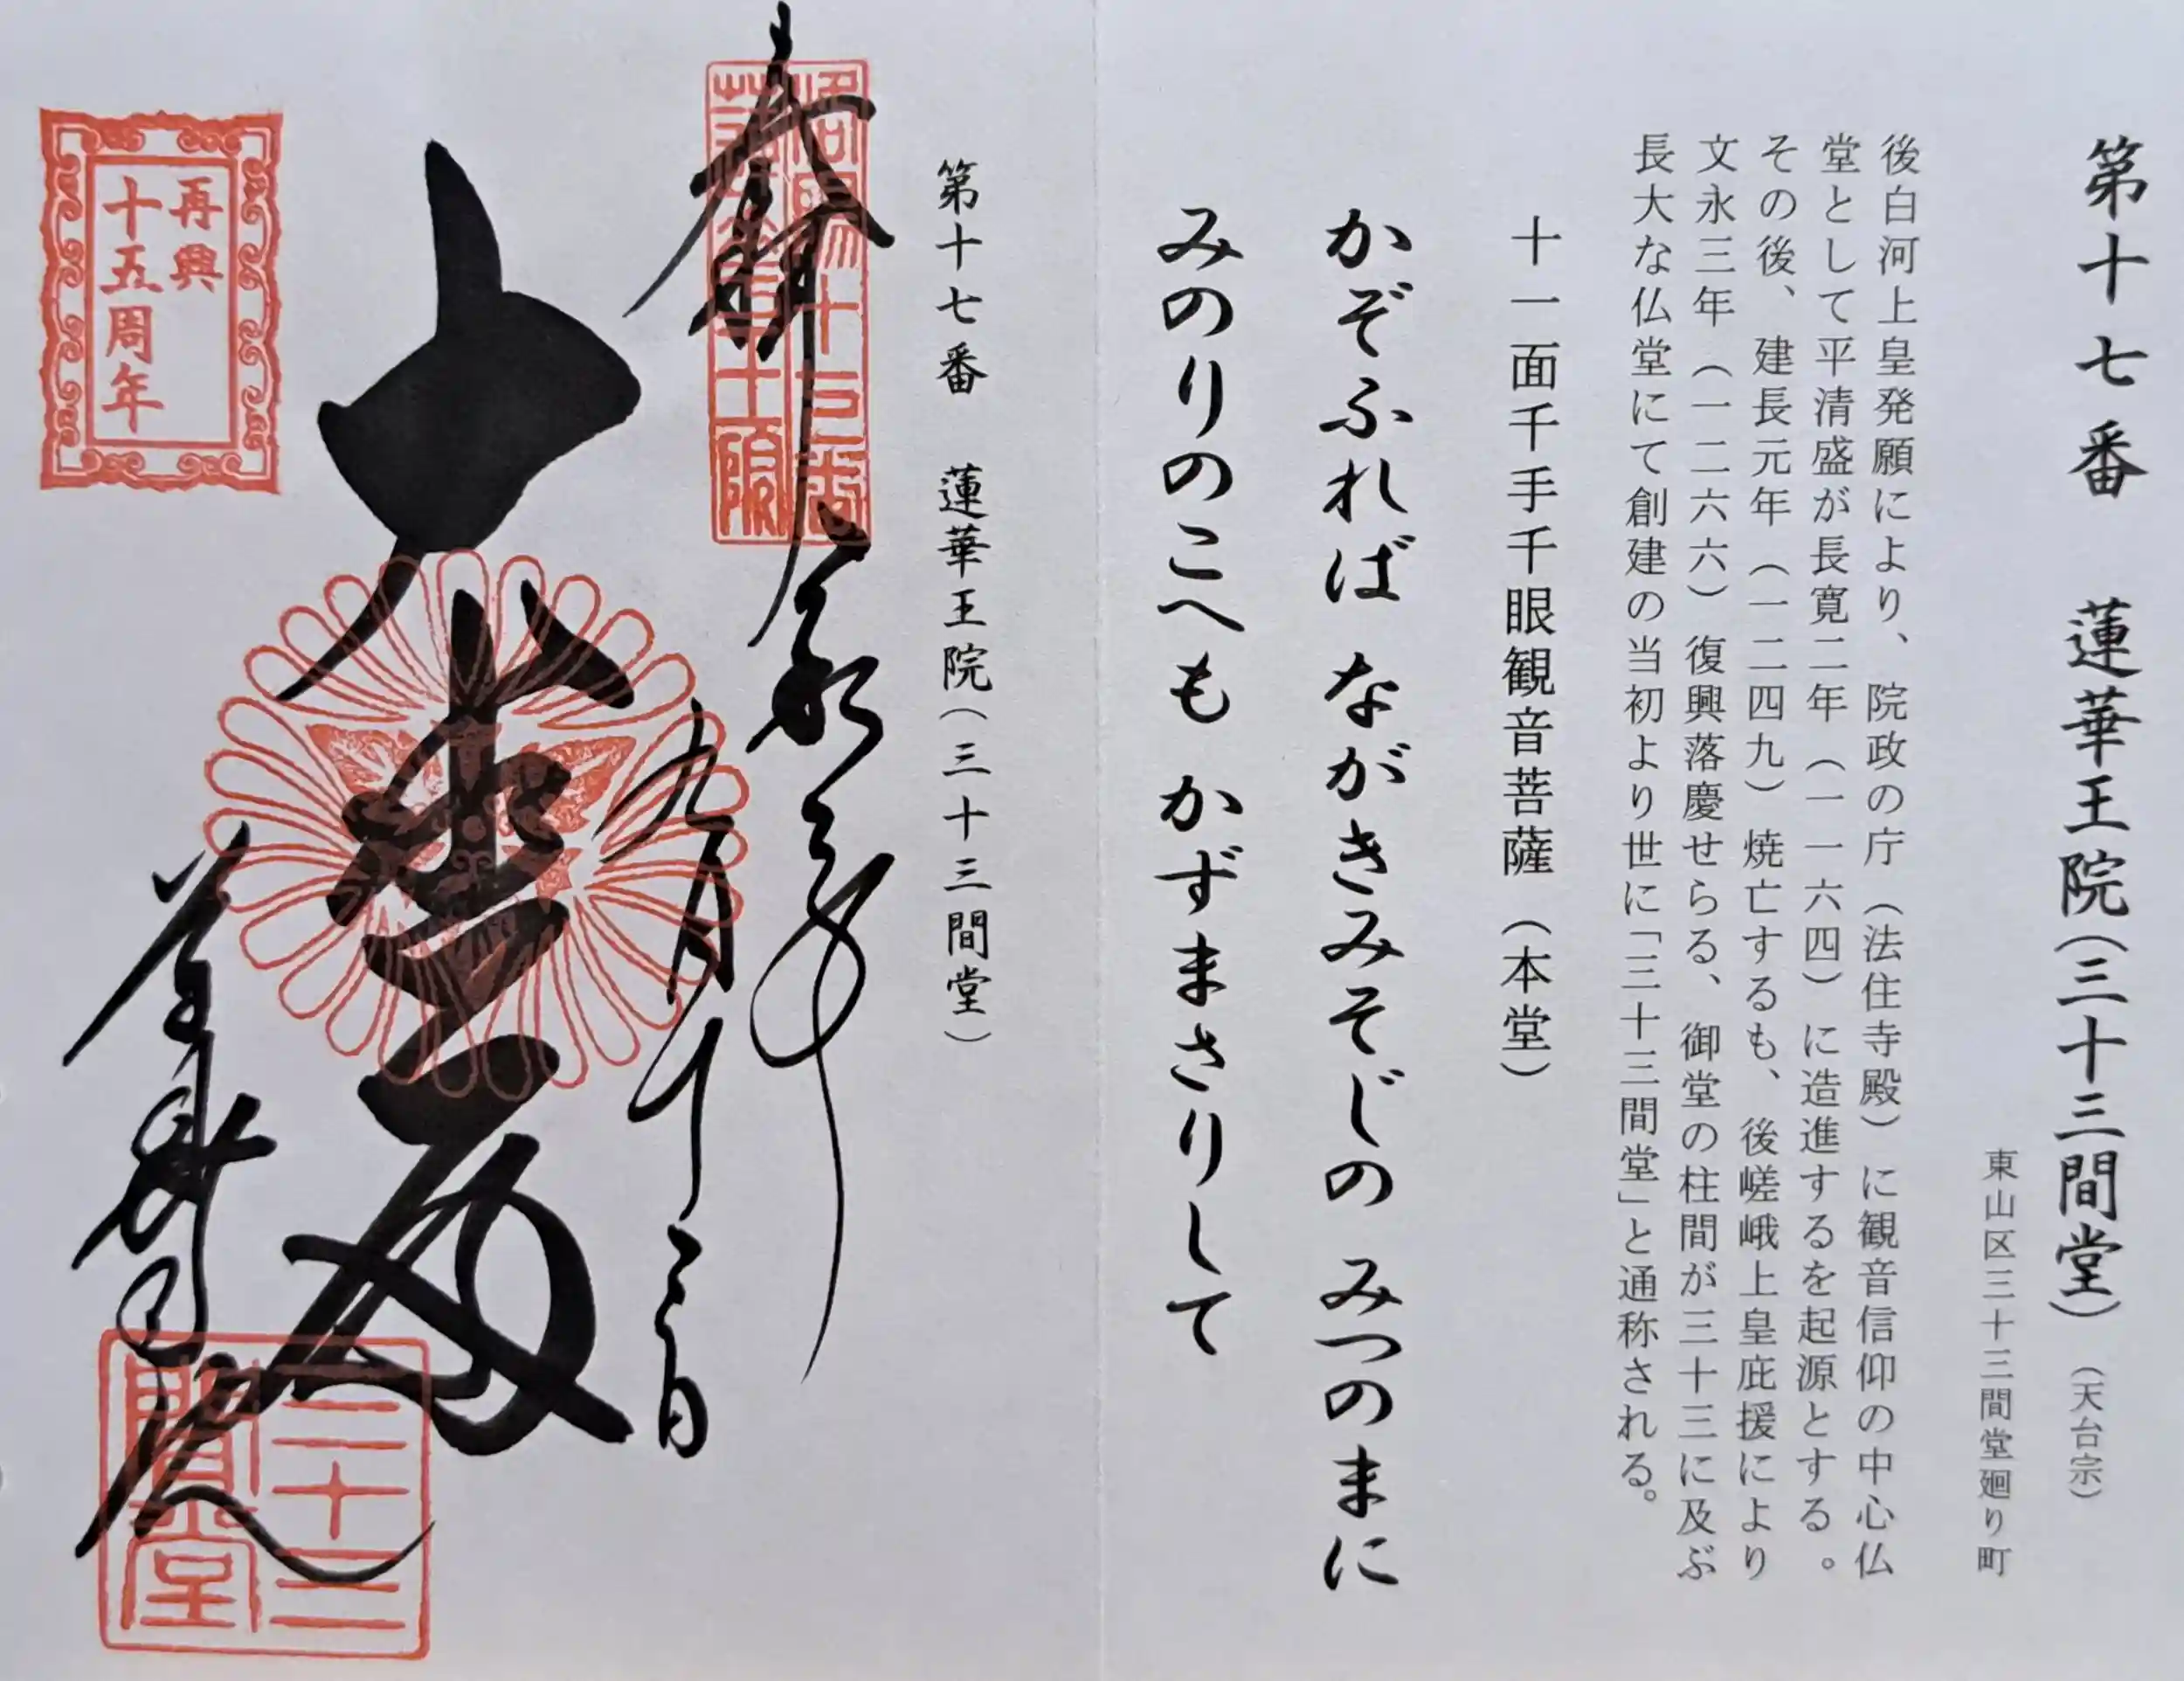 第十七番　蓮華王院（三十三間堂）（天台宗）
東山区三十三間堂廻り町
後白河上皇発願により、院政の庁（法住寺殿）に観音信仰の中心仏
堂として平清盛が長寛二年（一一六四）に造進するを起源とする。
その後、建長元年（一二四九）焼亡するも、後嵯峨上皇庇援により
文永三年（一二六六）復興落慶せらる、御堂の柱間が三十三に及ぶ
長大な仏堂にて創建の当初より世に「三十三間堂」と通称される。
十一面千手千眼観音菩薩（本堂）
かぞふれば ながきみそじの みつのまに
みのりのこへも かずまさりして
第十七番　蓮華王院（三十三間堂）
奉拝
九月十二日
大悲殿
蓮華王院
再興
十五周年
三十三
間堂